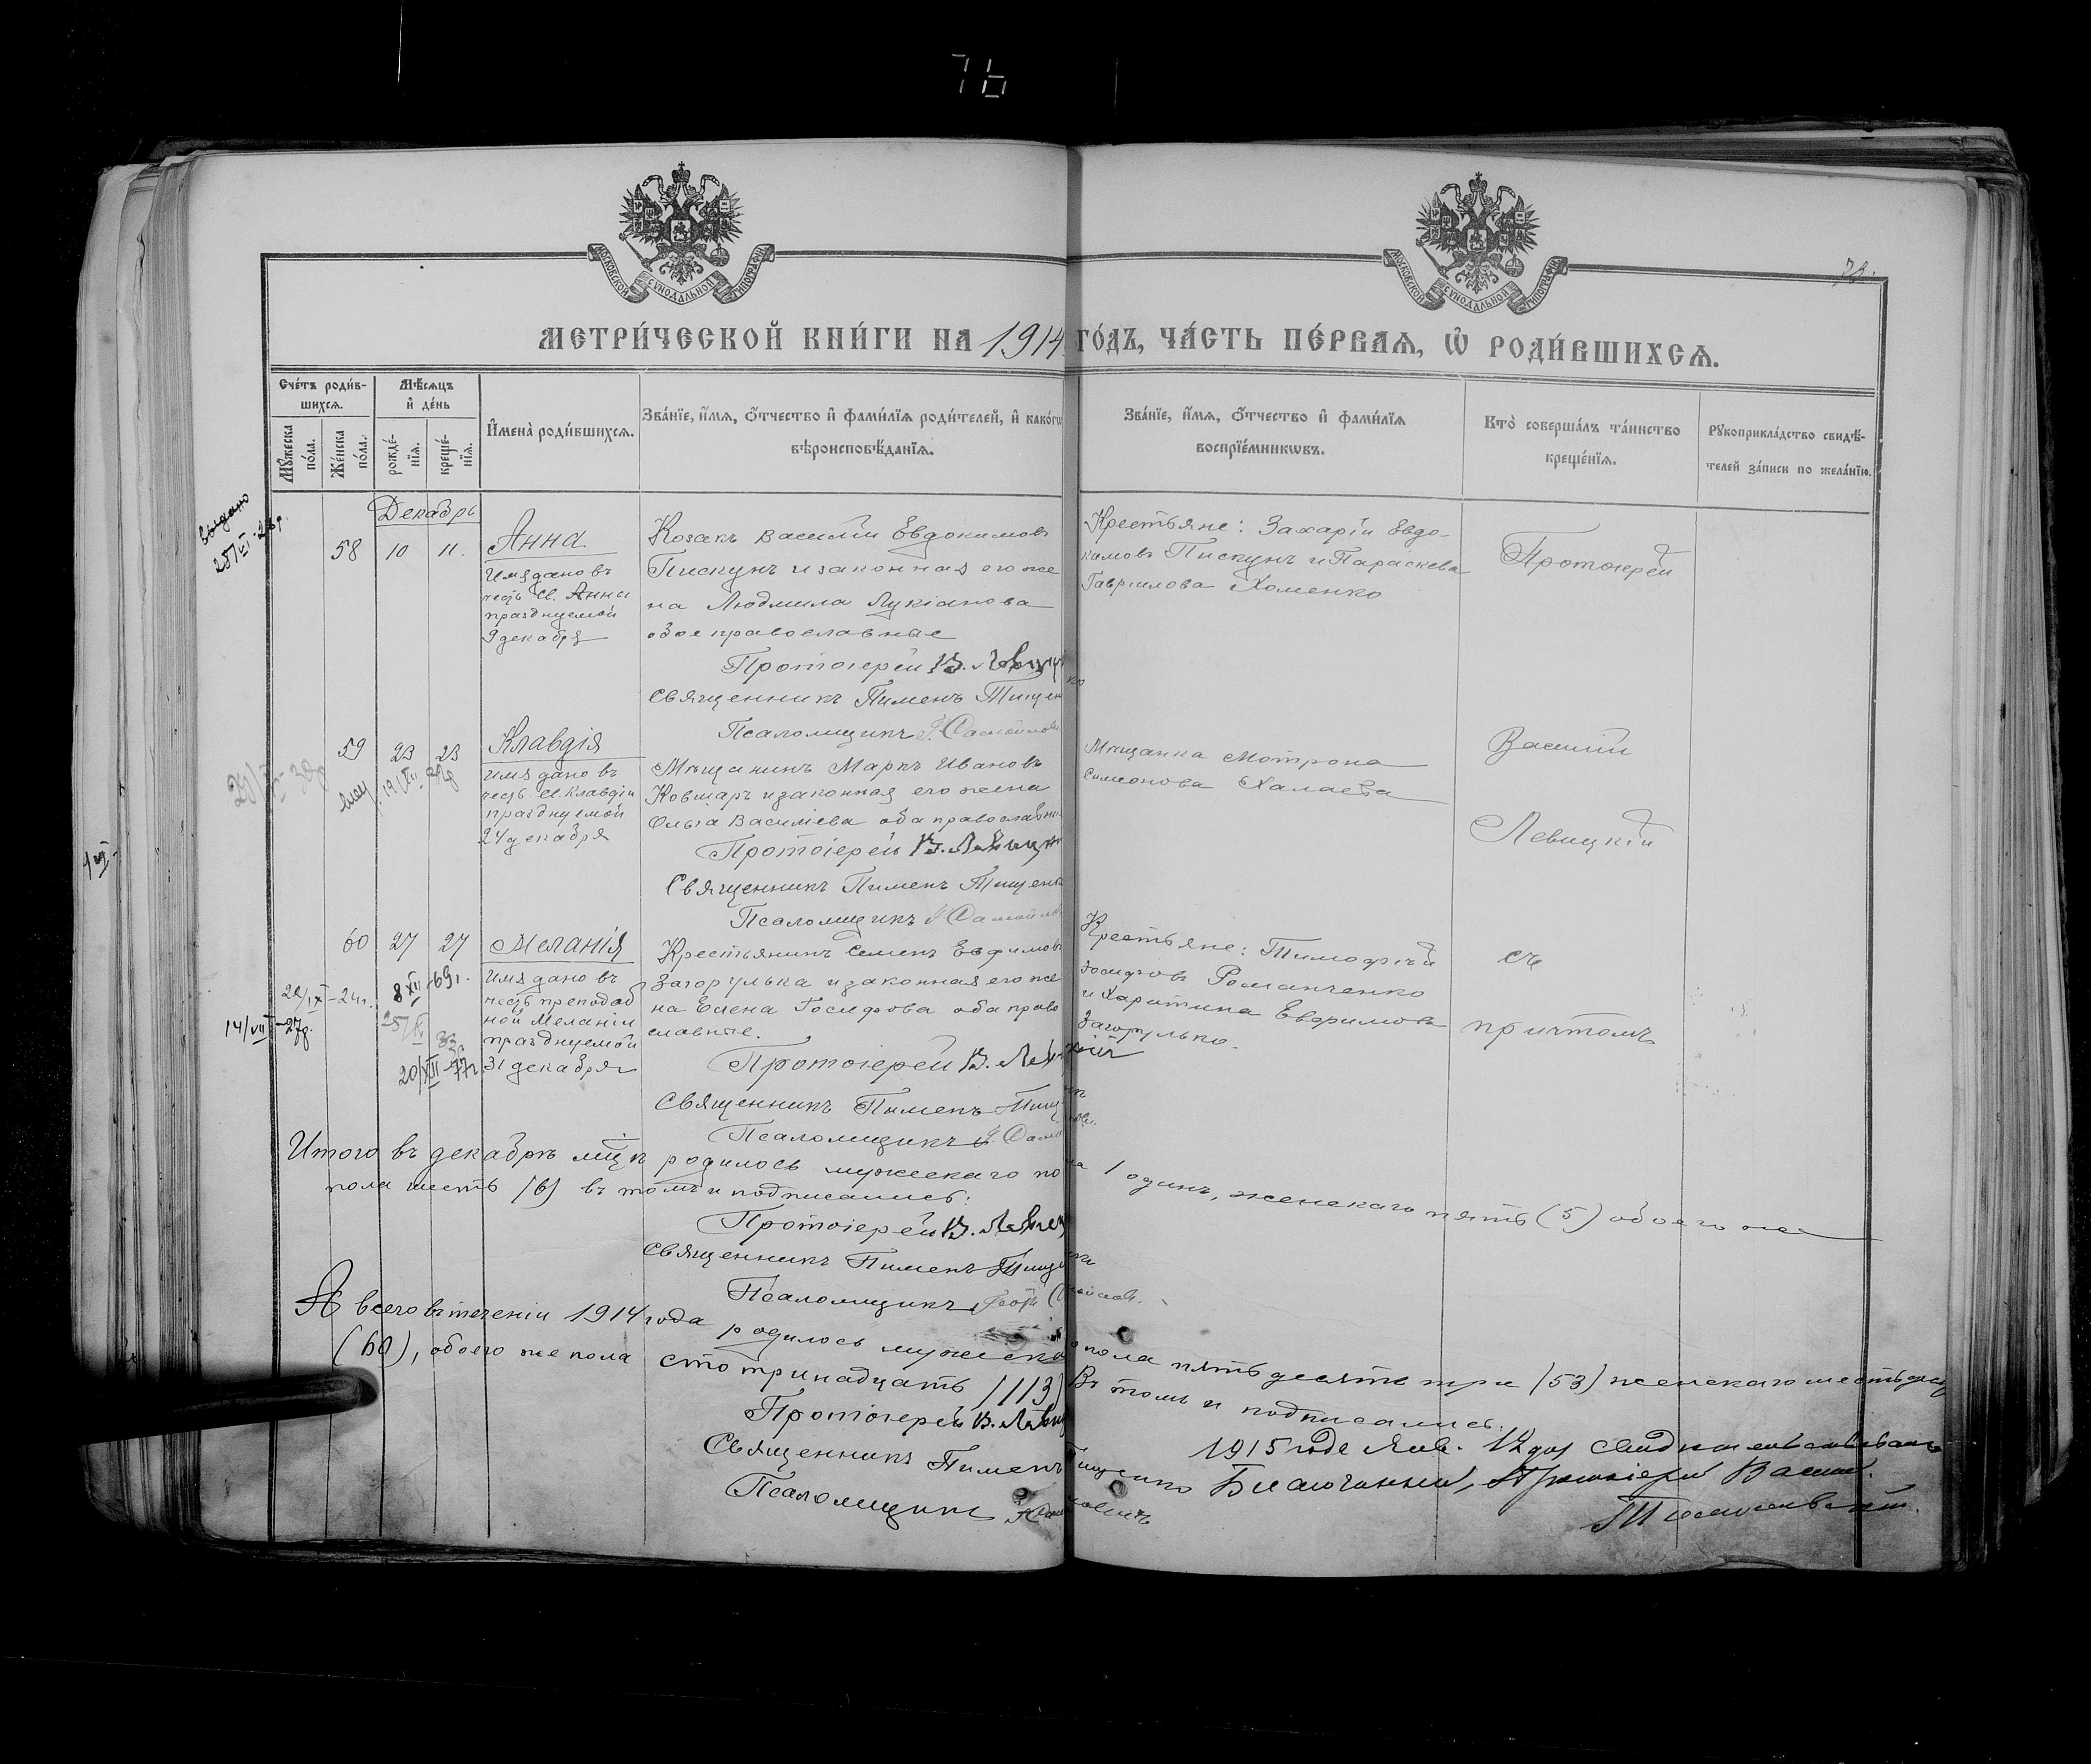 76
МОСКОВСКОЙ СѴНОДАЛЬНОЙ ТИПОГРАФІИ
МОСКОВСКОЙ СѴНОДАЛЬНОЙ ТИПОГРАФІИ
МЕТРИ́ЧЕСКОЙ КНИ́ГИ НА 1914 ГО́ДЪ, ЧА́СТЬ ПЕ́РВАЯ, Ѡ҆ РОДИ́ВШИХСЯ.
Сче́тъ роди́в-
шихся.
Мѣ́сяцъ
и҆ де́нь
И҆мена̀ роди́вшихся.
Зва́нїе, и҆́мя, ѻ҆́тчество и҆ фами́лїя роди́телей, и҆ како́гѡ
вѣроисповѣ́данїя.
Зва́нїе, и҆́мя, ѻ҆́тчество и҆ фами́лїя
воспрїе́мникѡвъ.
Кто̀ соверша́лъ та́инство
креще́нїя.
Рꙋкоприкла́дство свидѣ́-
телей за́писи по жела́нїю.
Мꙋ́жеска
по́ла.
Же́нска
по́ла.
рожде́-
нїя.
креще́-
нїя.
Декабрь
выдано
58 10 11.
Анна
Имя дано въ
честь Св. Анны
празднуемой
9 декабря
Козакъ Василій Евдокимовъ
Пискунъ и законная его же
на Людмила Лукіанова
обое православные
Протоіерей В. Левицкі
Священникъ Пименъ Тищенко
Псаломщикъ
Крестьяне: Захарій Евдо-
кимовъ Пискунъ и Параскева
Гавріилова Хоменко
Протоіерей
59 23 23
Клавдія
Имя дано въ
честь Св. Клавдіи
празднуемой
24 декабря
Мѣщанинъ Маркъ Ивановъ
Ковшаръ и законная его жена
Ольга Василіева оба православны
Протоіерей В. Левицкі
Священникъ Пименъ Тищенк
Псаломщикъ
Мѣщанка Мотрона
Симеонова Халаева
Василій
Левицкій
60 27 27
Меланія
Имя дано въ
честь преподоб
ной Меланіи
празднуемой
31 декабря
8 XII 69г.
14/VIII-27г.
20/XII-77г.
Крестьянинъ Семенъ Евфимовъ
Загорулька и законная его же
на Елена Іосифова оба право
славные.
Протоіерей В. Левицкій
Священникъ Пименъ Тищенк
Псаломщикъ
Крестьяне: Тимофей
Іосифовъ Романченко
и Харитина Евфимова
Загорулько.
съ
причтомъ
Итого въ декабрѣ мѣсяцѣ родилось мужескаго пола 1 одинъ, женскаго пять (5) обоего же
пола шесть (6) въ томъ и подписались:
Протоіерей В. Левицкі
Священникъ Пименъ Тищенко
Псаломщикъ
А всего втеченіи 1914 года родилось мужеско пола пятьдесятъ три (53) женскаго шестьдесят
(60), обоего же пола сто тринадцать (113) Въ томъ и подписались.
Протоіерей В. Левиц
Священникъ Пименъ Тищенко
Псаломщикъ
1915 года Янв. 12 дня
Благочинный, Протоіерей Васил.